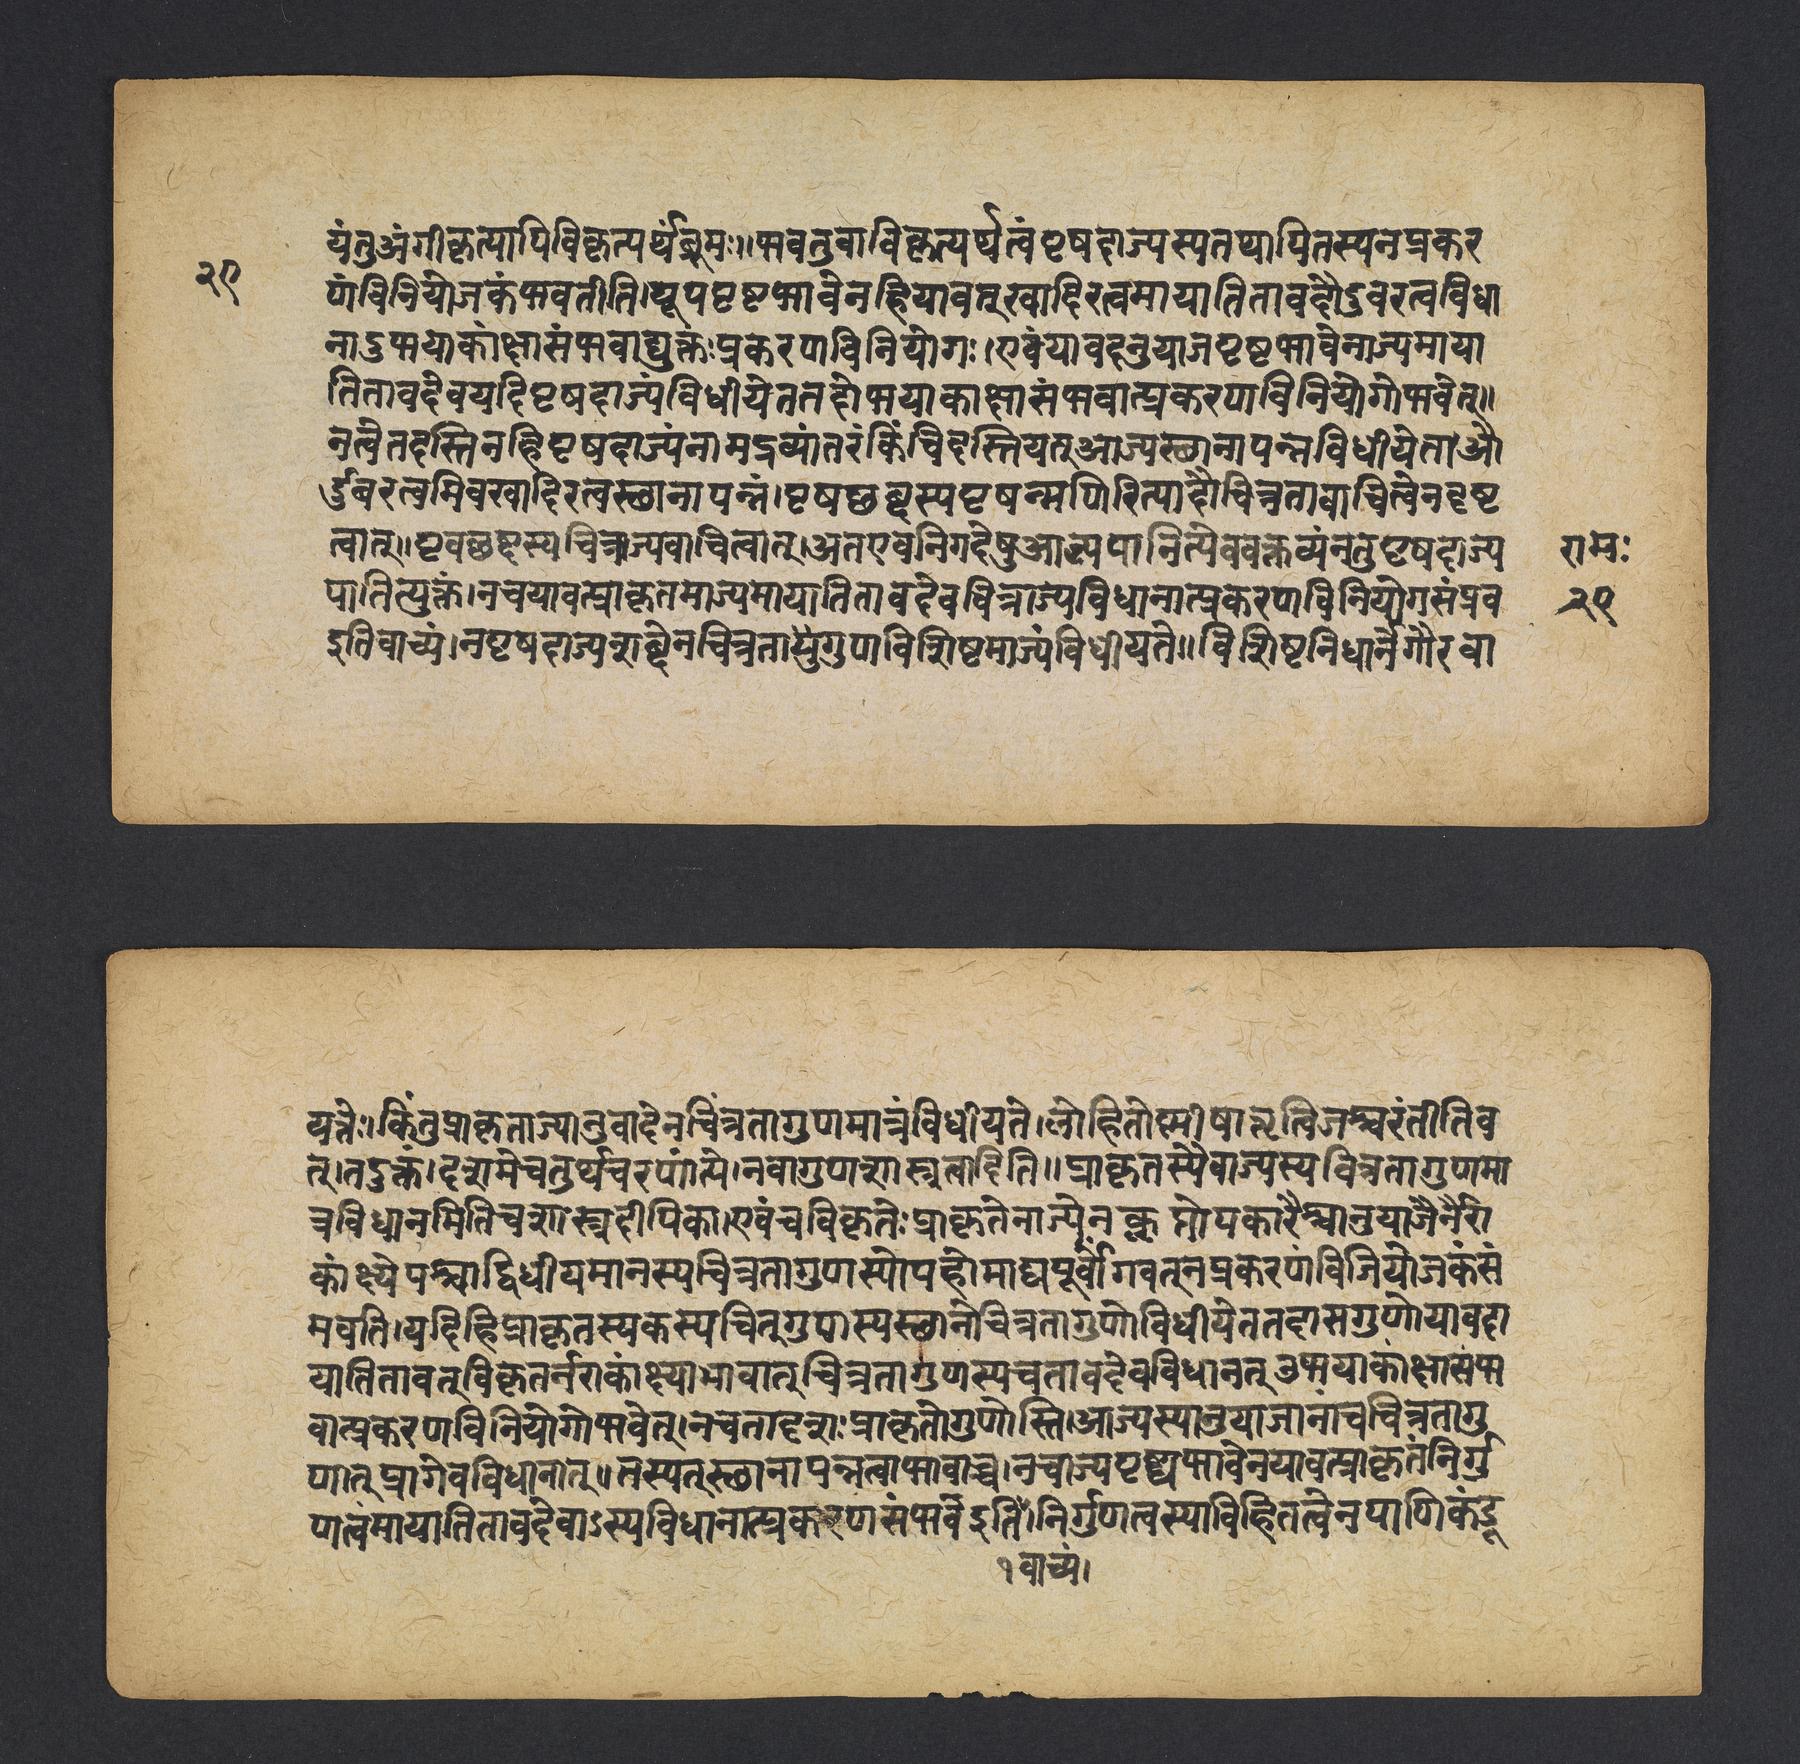 यंतुअंगीकृत्यापिविकृत्यर्थंब्रूमः॥भवतुवाविकृत्यर्थत्वंपृषदाज्यस्यतथापितस्यनप्रकर
२९
णंविनियोजकंभवतीति।यूपपृष्टभावेनहियावत्खादिरत्वमायातितावदौडुंबरत्वविधा
नादुभयाकांक्षासंभवाद्युक्तःप्रकरणविनियोगः।एवंयावदनुयाजपृष्टभावेनाज्यमाया
तितावदेवयदिपृषदाज्यंविधीयेततदोभयाकांक्षासंभवात्प्रकरणविनियोगोभवेत्॥
नत्वेतदस्तिनहिपृषदाज्यंनामद्रव्यांतरंकिंचिदस्तियत्आज्यस्छानापन्नंविधीयेत।औ
र्डुंबरत्वमिवखादिरत्वस्छानापन्नं।पृषछब्दस्यपृषन्मणिरित्यादौचित्रतावाचित्वेनदृष्ट
त्वात्॥पृषछब्दस्यचित्राज्यवाचित्वात्।अतएवनिगदेषुआज्यपानित्येववक्तव्यंनतुपृषदाज्य
रामः
पातित्युक्तं।नचयावत्प्राकृतमाज्यमायातितावदेवचित्राज्यविधानात्प्रकरणविनियोगसंप्रव
२९
इतिवाच्यं।नपृषदाज्यशब्देनचित्रतागुणविशिष्टमाज्यंविधीयते॥विशिष्टनिधानेगौरवा
यत्तेः।किंतुप्राकृताज्यानुवादेनचित्रतागुणमात्रंविधीयते।लोहितोष्मीषाऋत्विजश्चरंतीतिव
त्।तदुक्तं।दशमेचतुर्थचरणांत्ये।नवागुणशास्त्रत्वादिति॥प्राकृतस्यैवाज्यस्यचित्रतागुणमा
त्रविधानमितिचशास्त्रदीपिका।एवंचविकृतेःप्राकृतेनाज्येनकॢप्तोपकारैश्चानुयाजैर्नैरा
कांक्ष्येपश्चाद्विधीयमानस्यचित्रतागुणस्योपहोमाद्यपूर्वांगवत्नप्रकरणंविनियोजकंसं
मवति।यदिहिप्राकृतस्यकस्यचित्गुणस्यस्छानेचित्रतागुणोविधीयेततदासगुणोयावदा
यातितावत्विकृतेर्नराकांक्ष्याभावात्चित्रतागुणस्यचतावदेवविधानत्उभयाकांक्षासंभ
वात्प्रकरणविनियोगोभवेत्।नचतादृशःप्राकृतोगुणोस्ति।आज्यस्यानुयाजानांचचित्रतागु
णात्प्रागेवविधानात्॥तस्यतत्स्छानापन्नत्वाभावाच्च।नचाज्यपृष्टभावेनयावत्प्राकृतंनिर्गु
णत्वंमायातितावदेवाऽस्यविधानात्प्रकरणसंभवइति।निर्गुणत्वस्याविहितत्वेनपाणिकंडू
१वाच्यं।